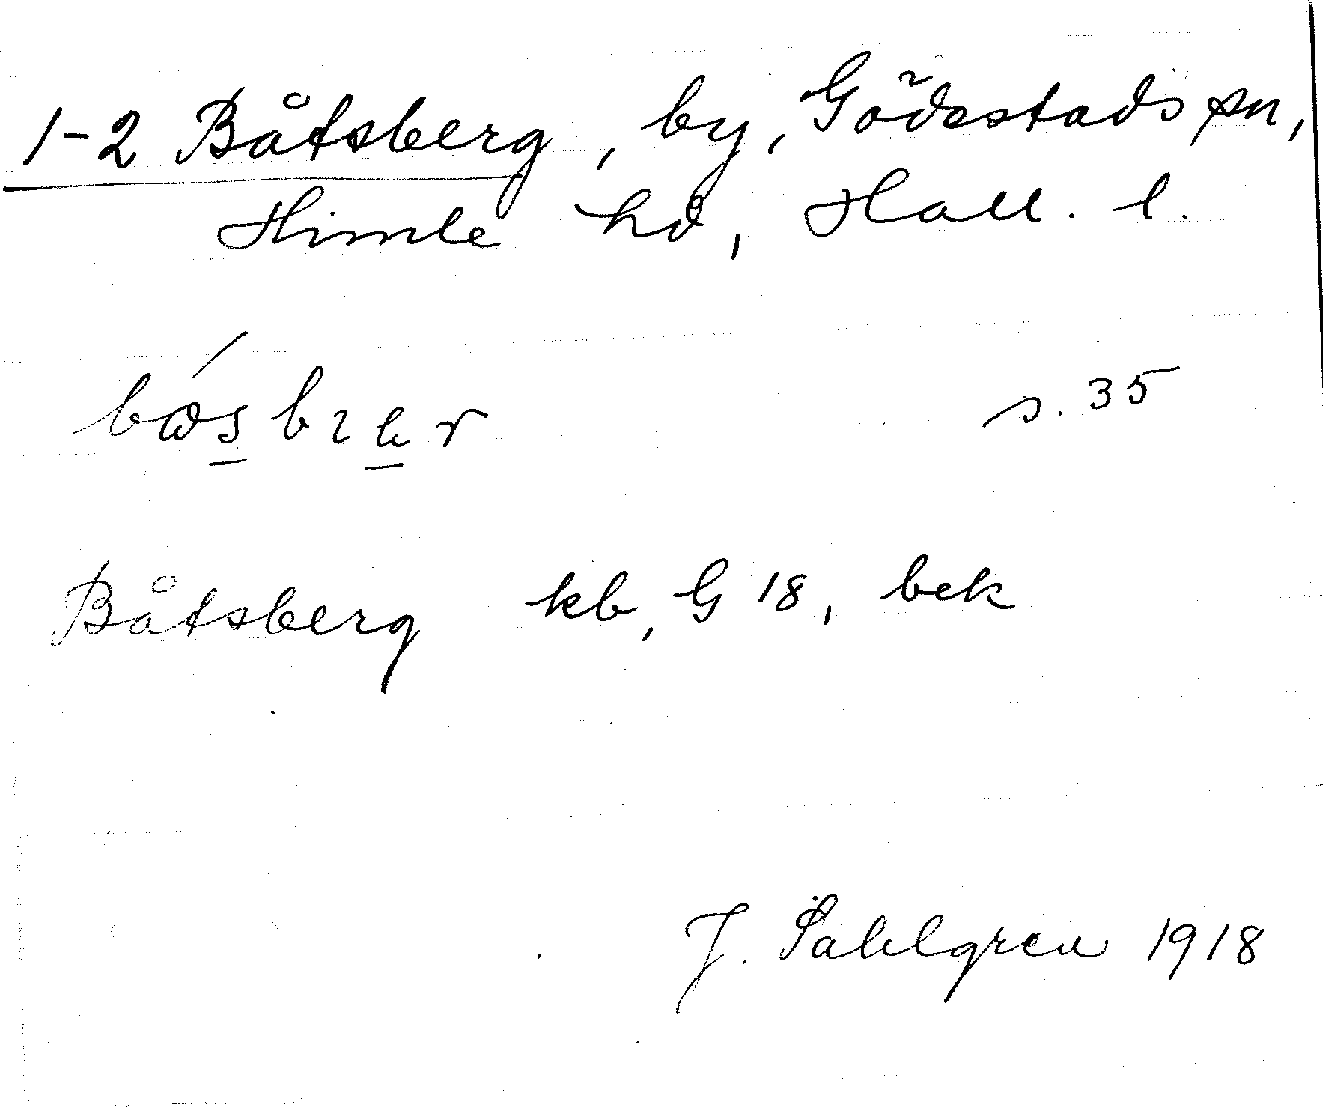 1-2 Båtsberg, by, Gödestads sn,
Himle hd, Hall. l.
s. 35
Båtsberg kb, G 18, bek
J. Sahlgren 1918